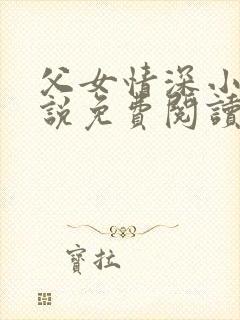 父女情深小
說免費閱讀
寶拉